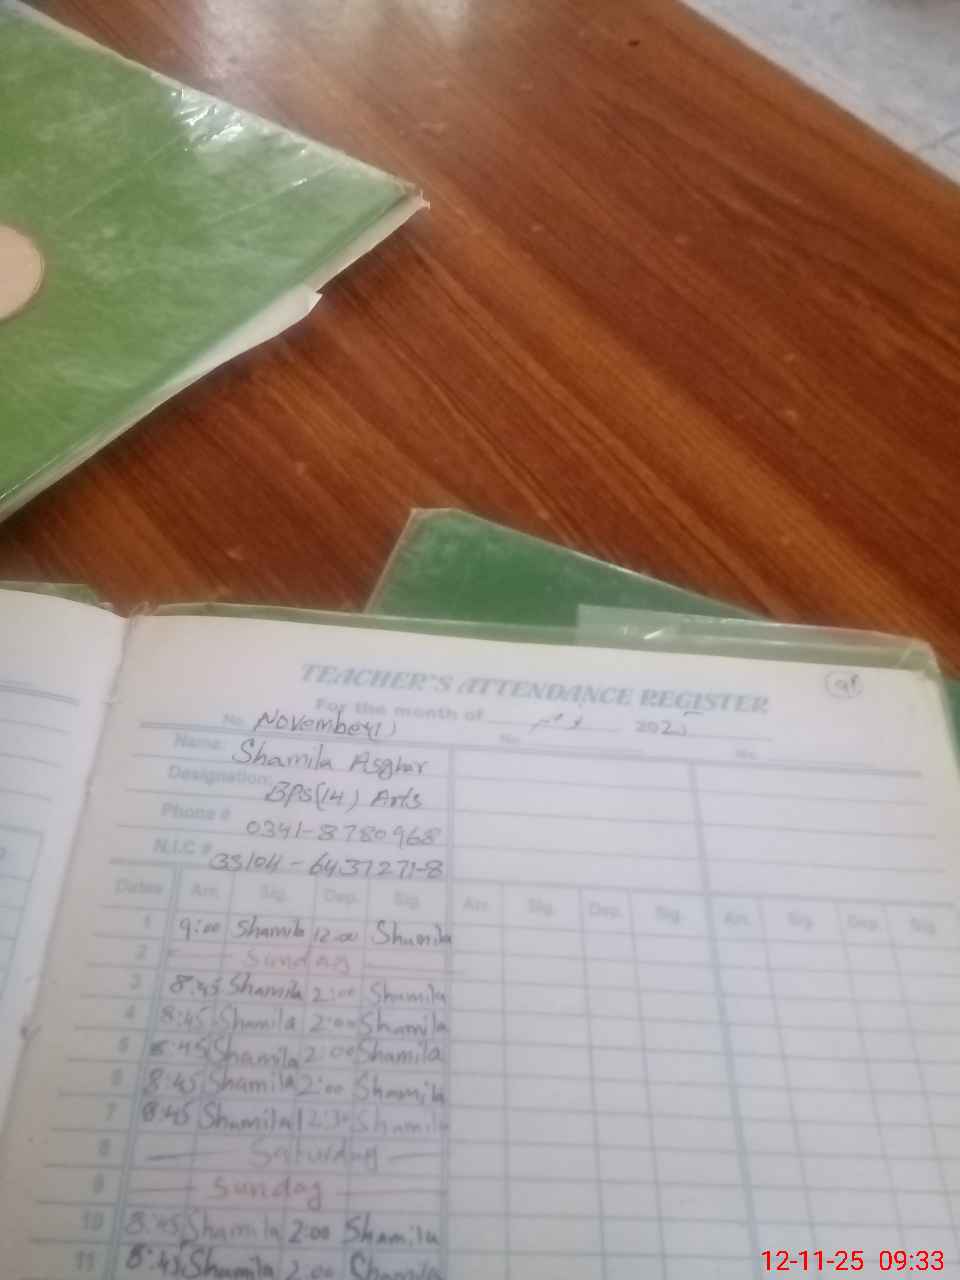 TEACHER'S ATTENDANCE REGISTER
For the month of 2025
No. November(11) No. No.
Name: Shamila Asghar
Designation: BPS(14) Arts
Phone # 0341-8780968
N.I.C # 33104-6437271-8
Dates Arr. Sig. Dep. Sig. Arr. Sig. Dep. Sig. Arr. Sig. Dep. Sig.
1 9:00 Shamila 12:00 Shamila
2 Sunday
3 8:45 Shamila 2:00 Shamila
4 8:45 Shamila 2:00 Shamila
5 8:45 Shamila 2:00 Shamila
6 8:45 Shamila 2:00 Shamila
7 8:45 Shamila 12:30 Shamila
8 Saturday
9 Sunday
10 8:45 Shamila 2:00 Shamila
11 8:45 Shamila 2:00 Shamila
12-11-25 09:33